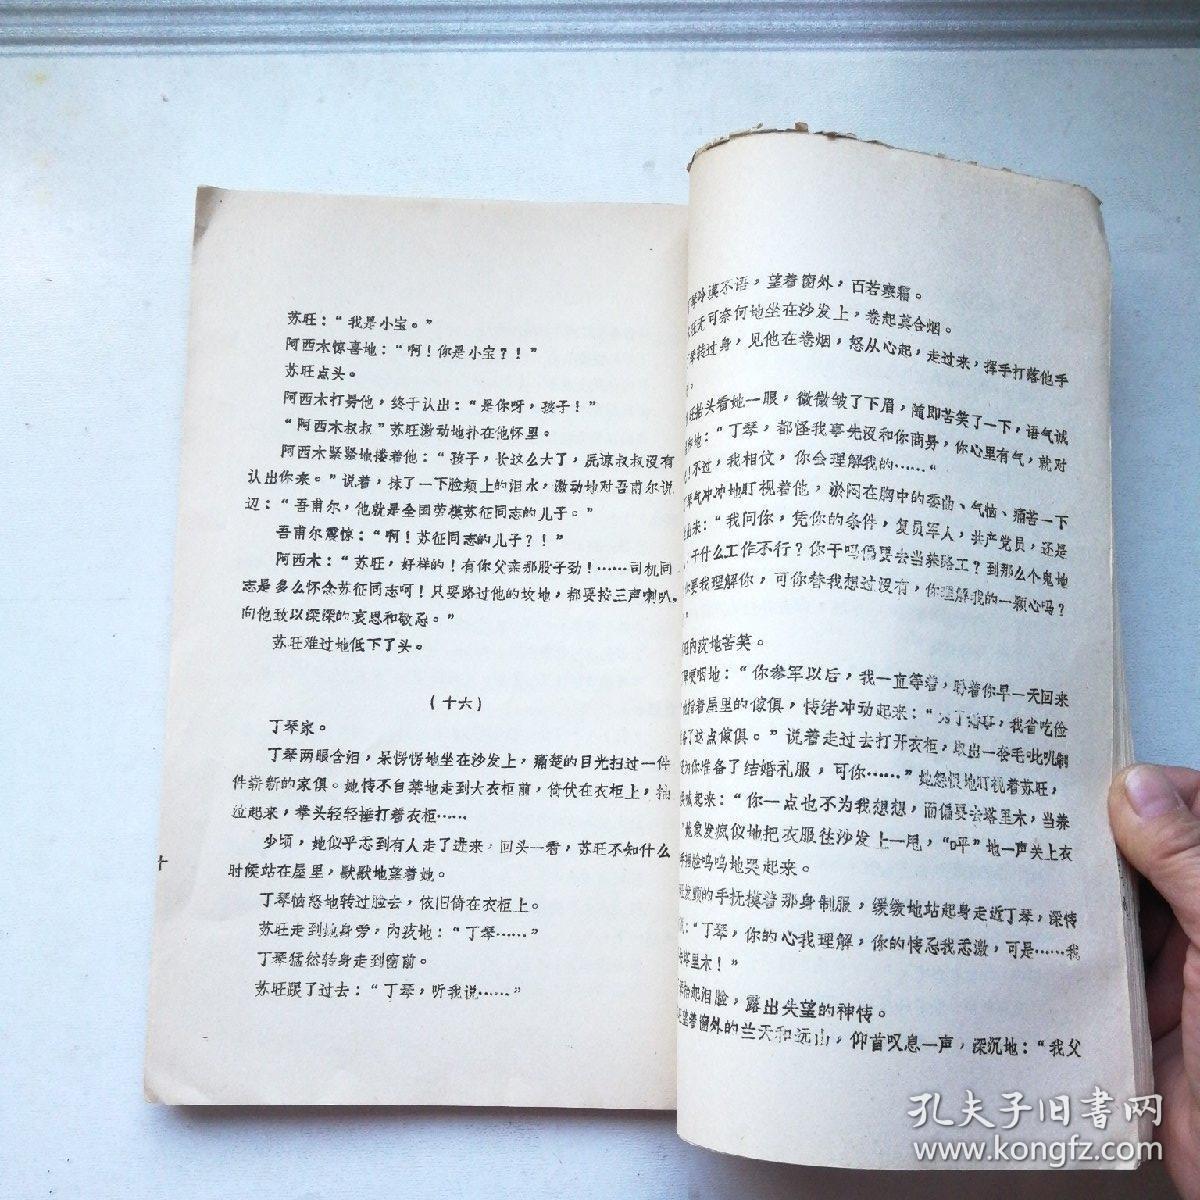 苏旺：“我是小宝。”
阿西木惊喜地：“啊！你是小宝？！”
苏旺点头。
阿西木打量他，终于认出：“是你呀，孩子！”
“阿西木叔叔”苏旺激动地扑在他怀里。
阿西木紧紧地搂着他：“孩子，长这么大了，原谅叔叔没有
认出你来。”说着，抹了一下脸颊上的泪水，激动地对吾甫尔说
边：“吾甫尔，他就是全国劳模苏征同志的儿子。”
吾甫尔震惊：“啊！苏征同志的儿子？！”
阿西木：“苏旺，好样的！有你父亲那股子劲！……司机同
志是多么怀念苏征同志啊！只要路过他的坟地，都要按三声喇叭，
向他致以深深的哀思和敬意。”
苏旺难过地低下了头。
（十六）
丁琴家。
丁琴两眼含泪，呆愣愣地坐在沙发上，痛楚的目光扫过一件
件崭新的家俱。她情不自禁地走到大衣柜前，倚伏在衣柜上，抽
泣起来，拳头轻轻捶打着衣柜……
少顷，她似乎感到有人走了进来，回头一看，苏旺不知什么
时候站在屋里，默默地望着她。
丁琴恼怒地转过脸去，依旧倚在衣柜上。
苏旺走到她身旁，内疚地：“丁琴……”
丁琴猛然转身走到窗前。
苏旺跟了过去：“丁琴，听我说……”
丁琴冷漠不语，望着窗外，百若寒霜。
无可奈何地坐在沙发上，卷起莫合烟。
琴转过身，见他在卷烟，怒从心起，走过来，挥手打落他手
。
旺抬头看她一眼，微微皱了下眉，随即苦笑了一下，语气诚
和地：“丁琴，都怪我事先没和你商量，你心里有气，就对
！不过，我相信，你会理解我的……“
气冲冲地盯视着他，淤闷在胸中的委曲、气恼、痛苦一下
出来：“我问你，凭你的条件，复员军人，共产党员，还是
，干什么工作不行？你干吗偏要去当养路工？到那么个鬼地
要我理解你，可你替我想过没有，你理解我的一颗心吗？
”
旺内疚地苦笑。
哽咽地：“你参军以后，我一直等着，盼着你早一天回来
指着屋里的傢俱，情绪冲动起来：“为了结婚，我省吃俭
了这点傢俱。”说着走过去打开衣柜，取出一套毛毕叽制
为你准备了结婚礼服，可你……”她怨恨地盯视着苏旺，
喊起来：“你一点也不为我想想，而偏要去塔里木，当养
”她象发疯似地把衣服往沙发上一甩，“呯”地一声关上衣
捂脸呜呜地哭起来。
发颤的手抚摸着那身制服，缓缓地站起身走近丁琴，深情
：“丁琴，你的心我理解，你的情意我感激，可是……我
塔里木！”
抬起泪脸，露出失望的神情。
望着窗外的兰天和远山，仰首叹息一声，深沉地：“我父
孔夫子旧书网
www.kongfz.com